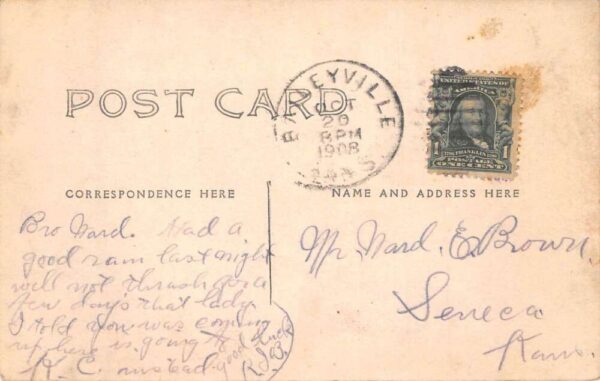 POST CARD
BAILEYVILLE
OCT
20
8PM
1908
KANS
UNITED STATES OF
AMERICA
FRANKLIN
1 1
POSTAGE
ONE CENT
CORRESPONDENCE HERE
Bro Ward. Had a
good rain last night
will not thrash for a
few days that lady
I told you was coming
up here is going to
K. C. instead good luck
NAME AND ADDRESS HERE
Mr. Ward. E. Brown.
Seneca
Kans.